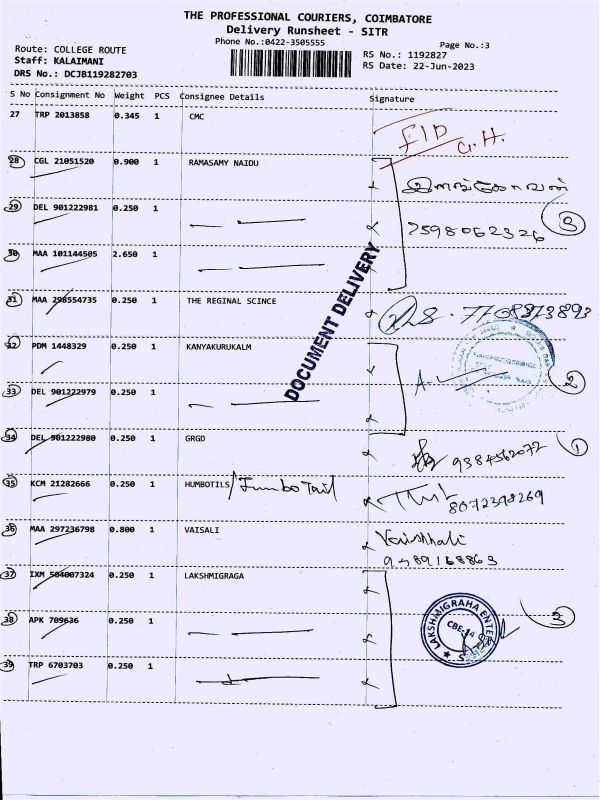 THE PROFESSIONAL COURIERS, COIMBATORE
Delivery Runsheet - SITR
Phone No.:0422-3505555
Page No.:3
Route: COLLEGE ROUTE
RS No.: 1192827
Staff: KALAIMANI
RS Date: 22-Jun-2023
DRS No.: DCJB119282703
S No Consignment No Weight PCS Consignee Details Signature
27 TRP 2013858 0.345 1 CMC
28 CGL 21051520 0.900 1 RAMASAMY NAIDU
29 DEL 901222981 0.250 1
7598062326
3
30 MAA 101144505 2.650 1
DOCUMENT DELIVERY
31 MAA 298554735 0.250 1 THE REGINAL SCINCE
7708373893
32 PDM 1448329 0.250 1 KANYAKURUKALM
2
33 DEL 901222979 0.250 1
34 DEL 901222980 0.250 1 GRGD
9384562072
1
35 KCM 21282666 0.250 1 HUMBOTILS /Jumbo Tail
8072398269
36 MAA 297236798 0.800 1 VAISALI
Vaishhali
9489168863
37 IXM 504007324 0.250 1 LAKSHMIGRAGA
LAKSHMIGRAHA ENTER
3
38 APK 709636 0.250 1
39 TRP 6703703 0.250 1